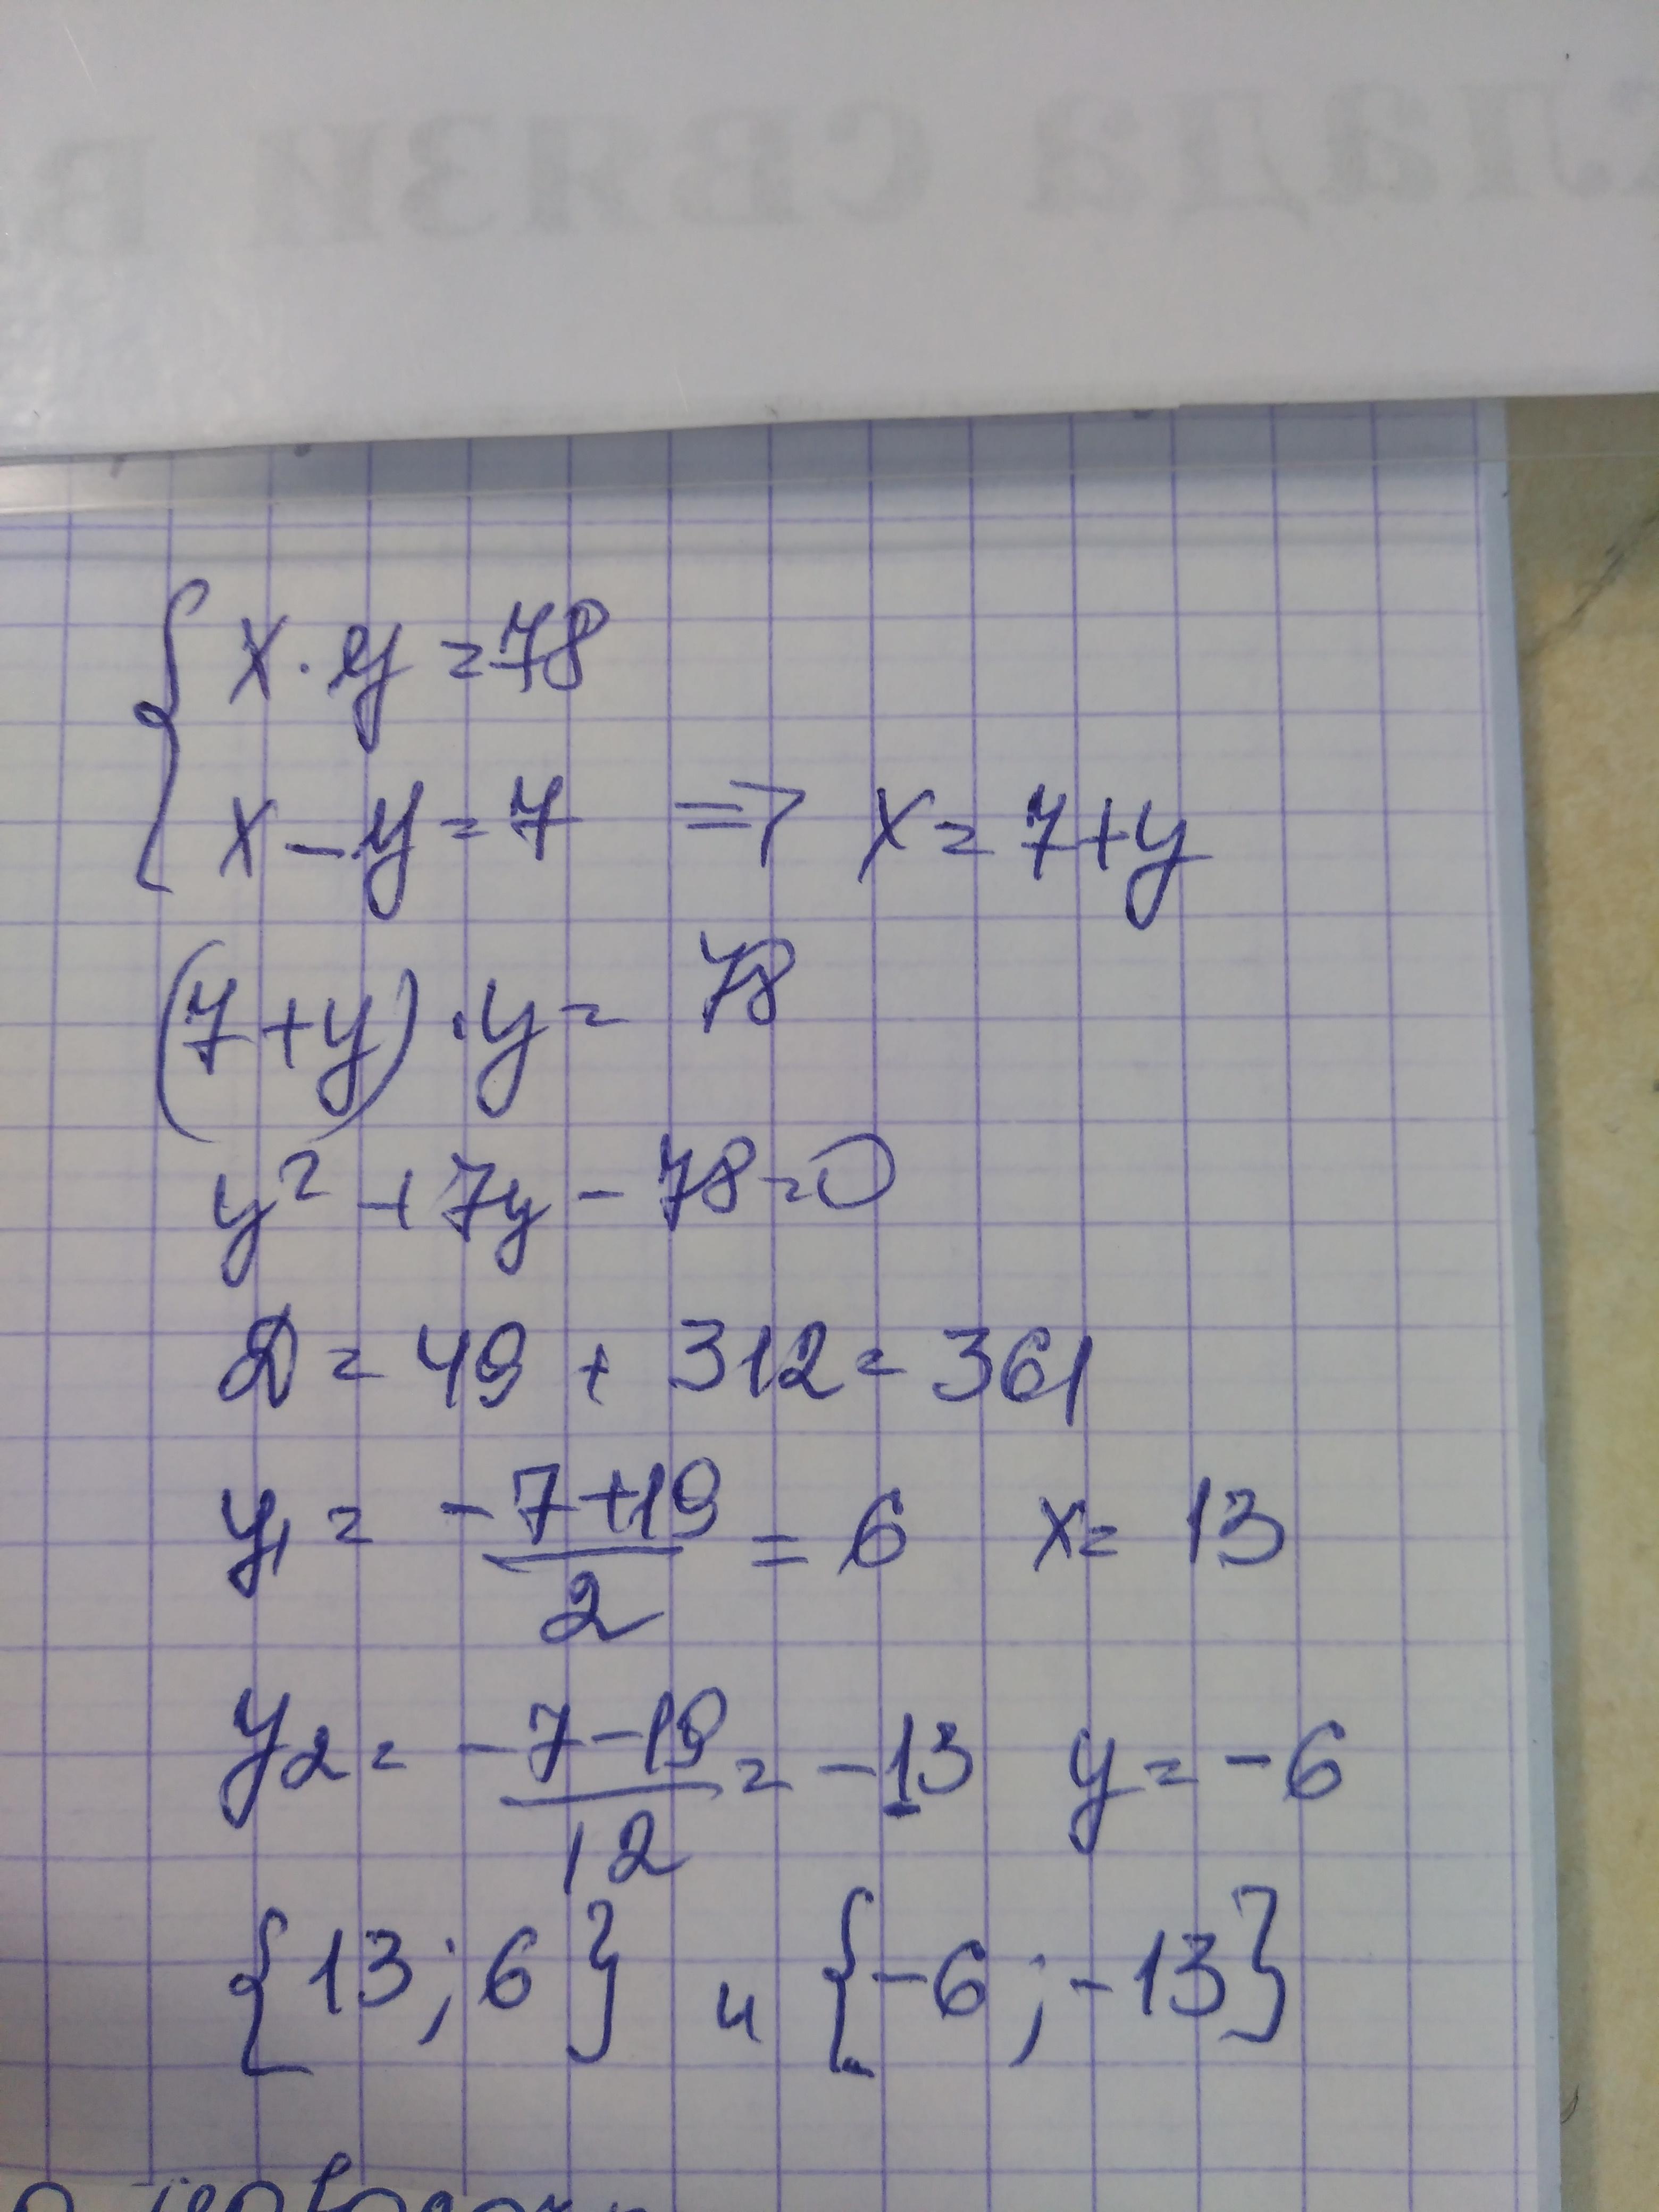 клада связи в
{ x · y = 78
x - y = 7 => x = 7 + y
(7 + y) · y = 78
y² + 7y - 78 = 0
D = 49 + 312 = 361
y₁ = (-7+19)/2 = 6 x = 13
y₂ = (-7-19)/12 = -13 y = -6
{13; 6} и {-6; -13}